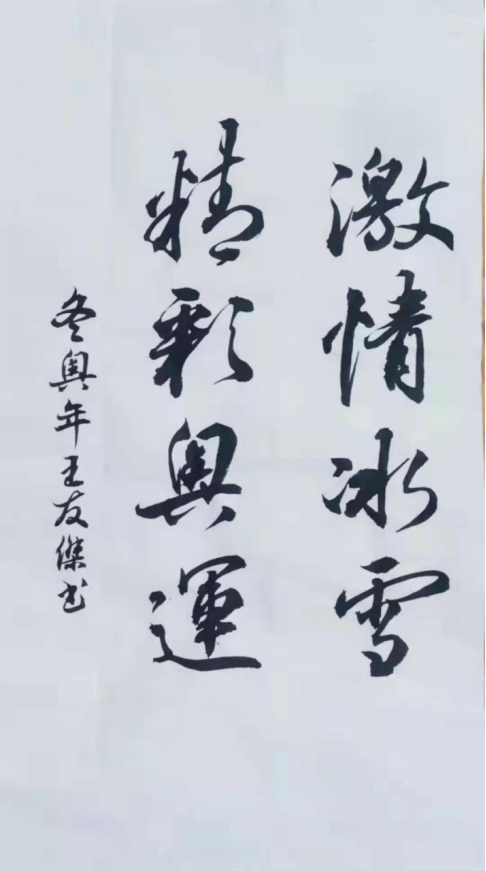 激情冰雪
精彩奥運
冬奥年王友傑书